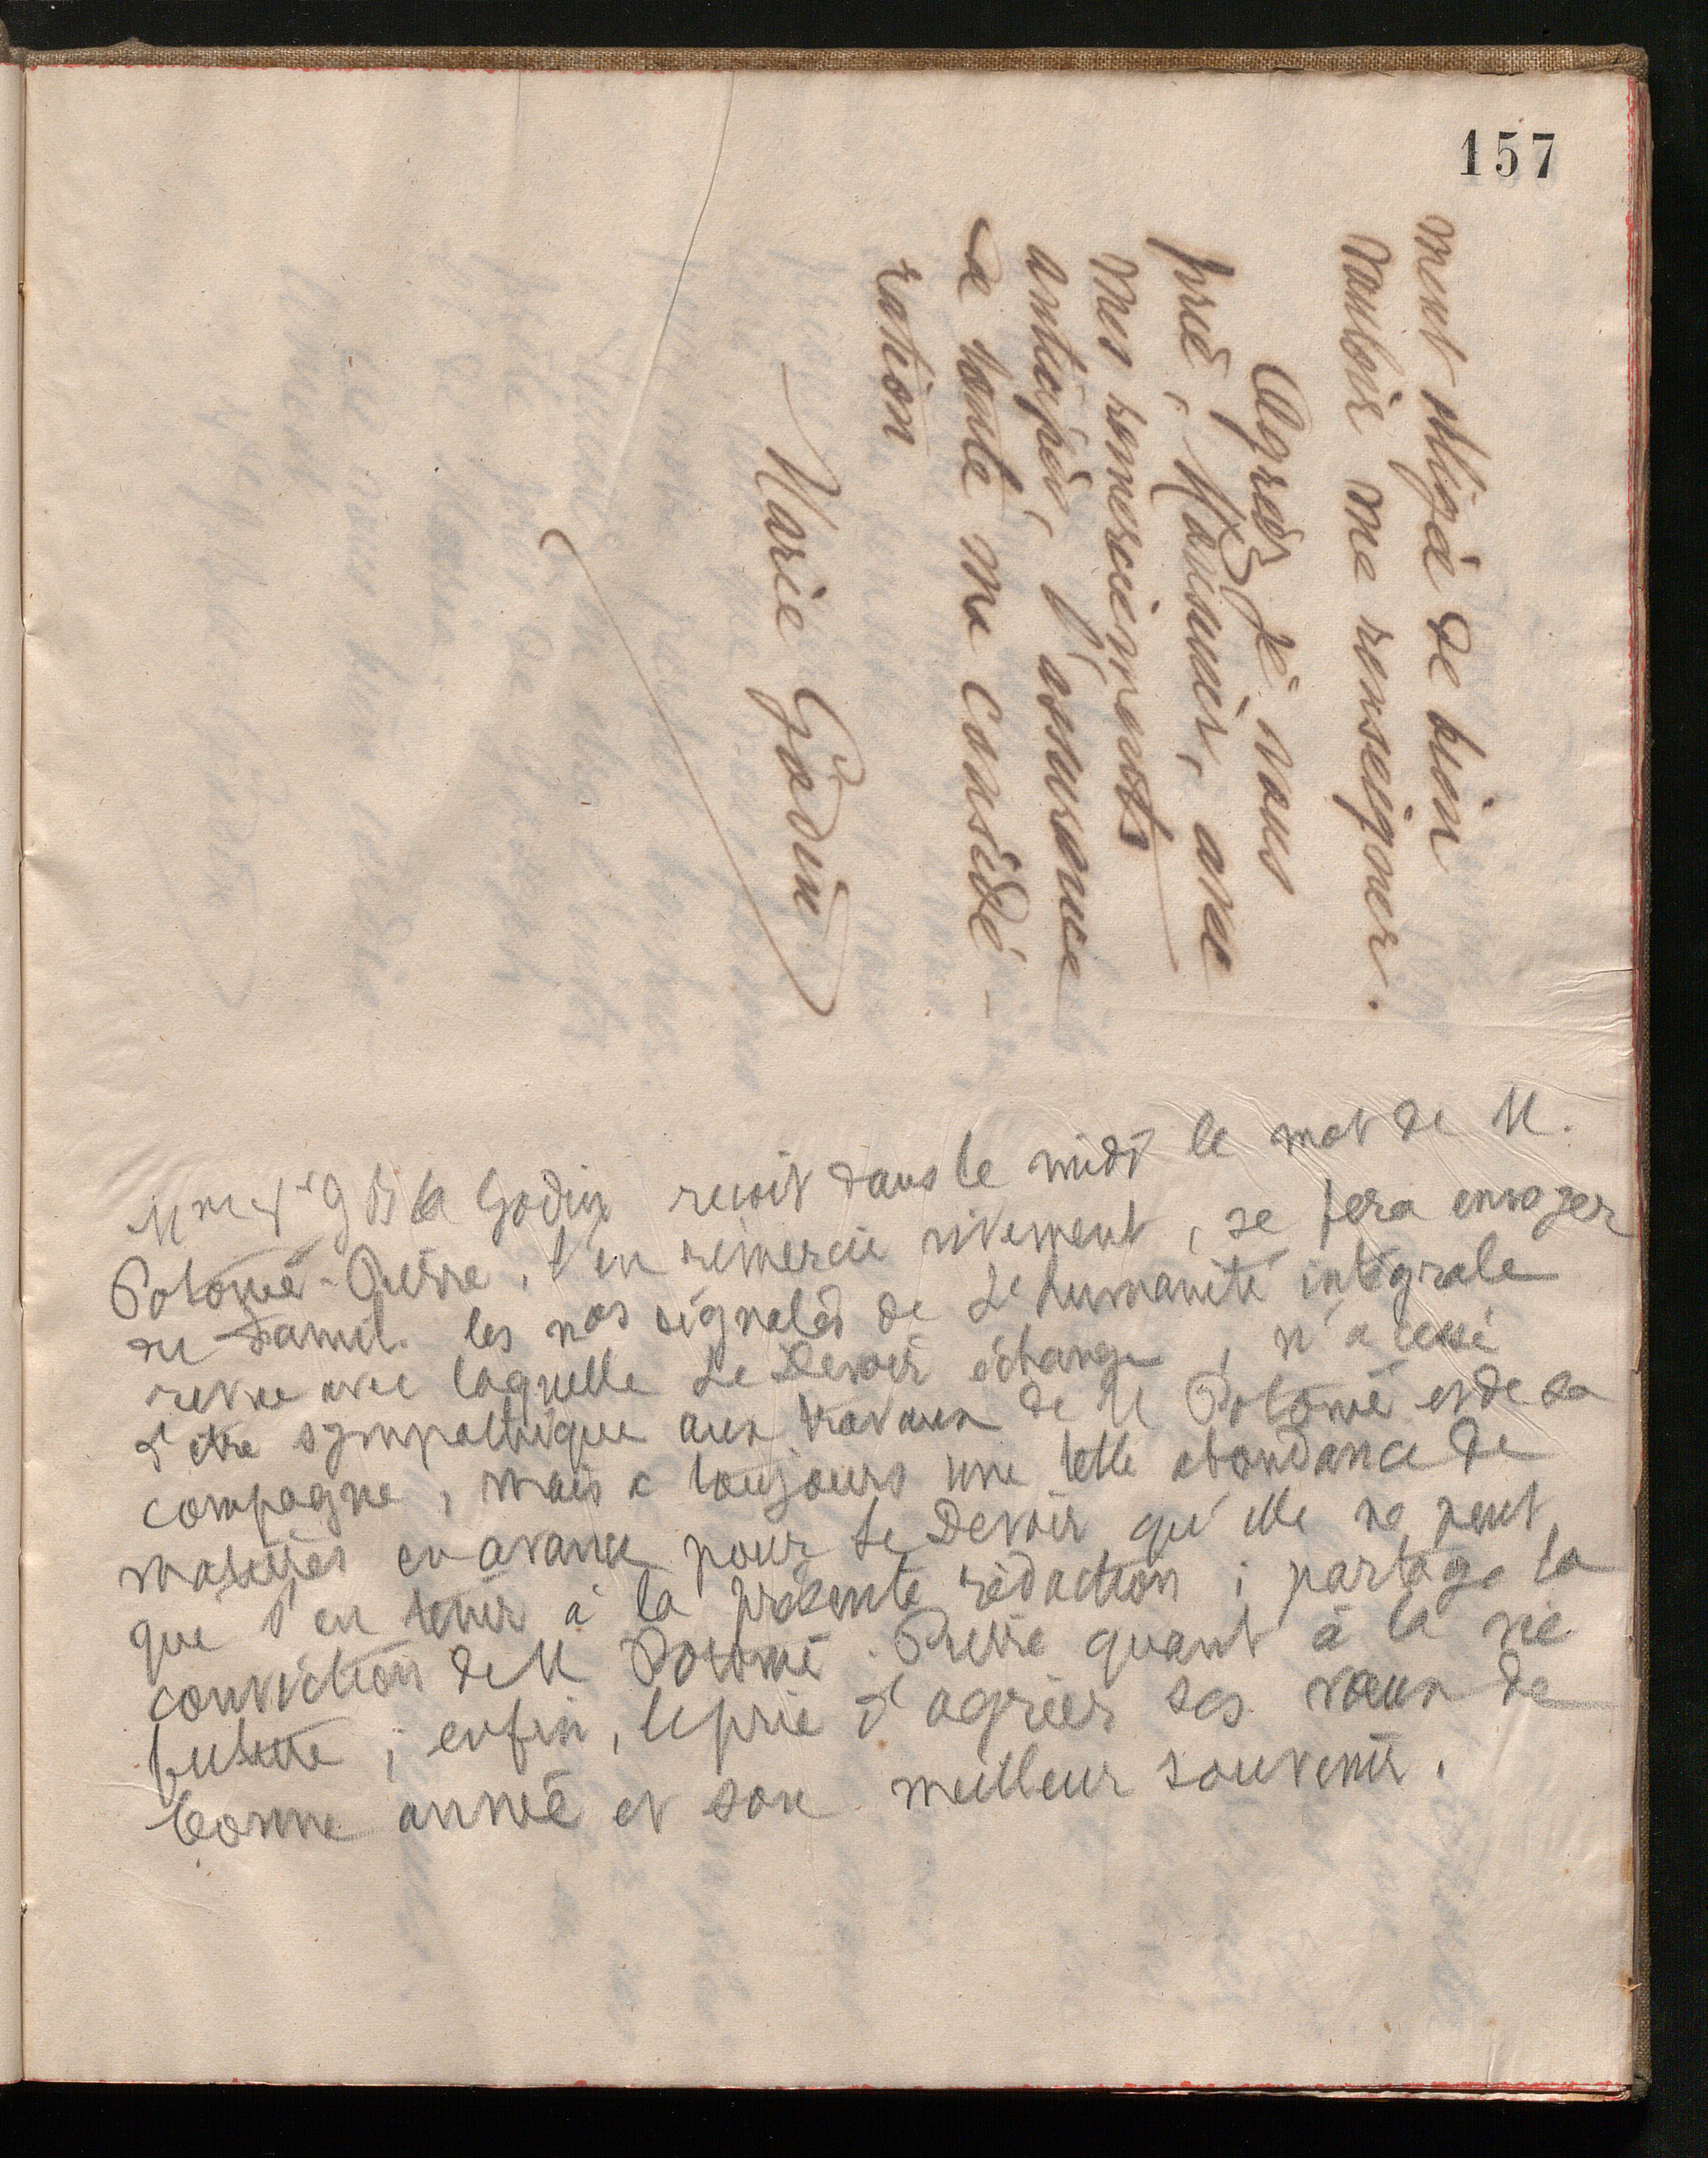 157
ment obligée de bien
vouloir me renseigner.
Agréez je vous
prie, Monsieur, avec
mes remerciements
anticipés, l'assurance
de toute ma considé-
ration
Marie Godin
Godin reçoit dans le midi le mot de M.
Potonié-Pierre, l'en remercie vivement, se fera envoyer
du Famil. les nos signalés de L'humanité intégrale
revue avec laquelle Le Devoir échange, n'a cessé
d'être sympathique aux travaux de M Potonié et de sa
compagne, mais a toujours une telle abondance de
matières en avance pour Le Devoir qu'elle ne peut
que s'en tenir à la présente rédaction ; partage la
conviction de M Potonié-Pierre quant à la vie
future ; enfin, le prie d'agréer ses vœux de
bonne année et son meilleur souvenir.